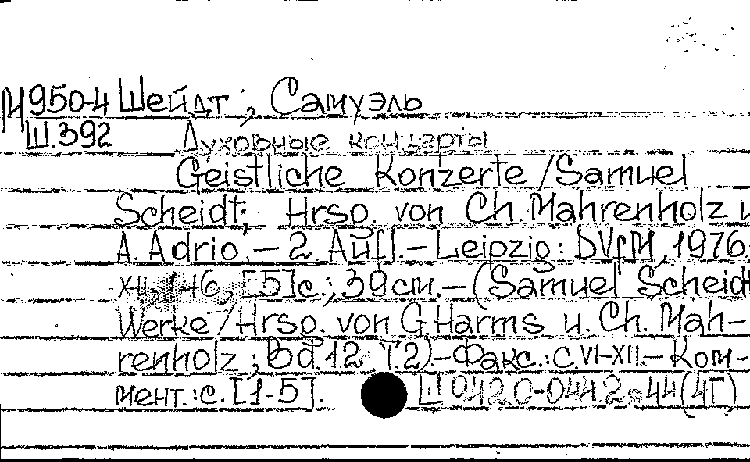 М950-4 Шейдт, Самуэль
Ш.392 Духовные концерты
Geistliche Konzerte / Samuel
Scheidt; Hrsg. von Ch. Mahrenholz u.
A. Adrio. – 2. Aufl. – Leipzig: DVfM, 1976.
XII, 146, [5] с.; 39 см. – (Samuel Scheidt
Werke / Hrsg. von G. Harms u. Ch. Mah-
renholz; Bd. 12 (2). – Факс.: с. VI-XII. – Ком-
мент.: с. [1-5].